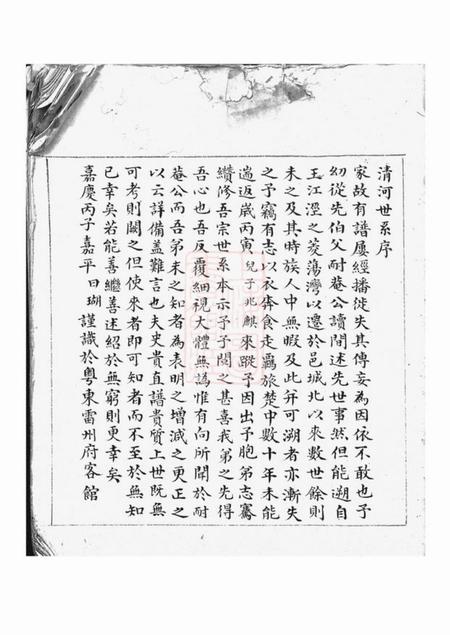 清河世系序
家故有譜屢經播徙失其傳妄為因依不敢也予
幼從先伯父耐菴公讀聞述先世事然但能溯自
玉江涇之菱蕩灣以遷於邑城北以來數世餘則
未之及其時族人中無暇及此并可溯者亦漸失
之予竊有志以衣奔食走羈旅楚中數十年未能
遄返歲丙寅兒子兆麒來蹤予因出予胞弟志騫
纘修吾宗世系本示予予閱之甚喜我弟之先得
吾心也吾反覆細視大體無譌惟有向所聞於耐
菴公而吾弟未之知者為表明之增減之更正之
以云詳備蓋難言也夫史貴直譜貴質上世既無
可考則闕之但使來者即可知者而不至於無知
已幸矣若能善繼善述紹於無窮則更幸矣
嘉慶丙子嘉平日瑚謹識於粵東雷州府客館